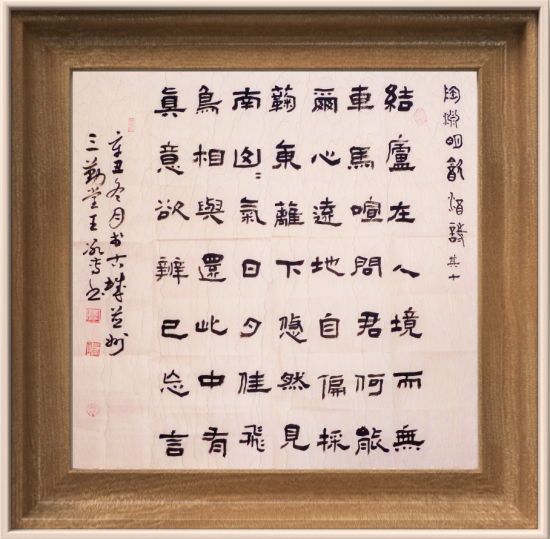 陶淵明飲酒詩 其十
結廬在人境而無
車馬喧問君何能
爾心遠地自偏採
鞠東籬下悠然見
南山〻氣日夕佳飛
鳥相與還此中有
眞意欲辨已忘言
辛丑冬月书古城并州
三勤堂王